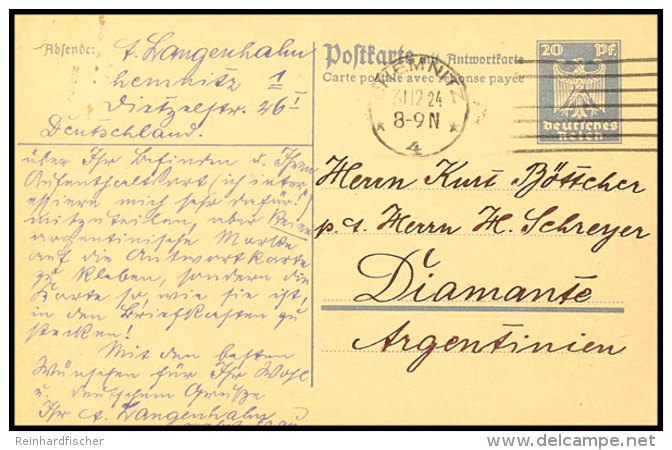 Absender:
A. Langenhahn
Chemnitz 1
Dietzelstr. 26 I
Deutschland.
Postkarte mit Antwortkarte
Carte postale avec réponse payée
20 Pf
Deutsches
Reich
CHEMNITZ
31.12.24
8-9N
* 4 *
über Ihr Befinden u. Ihren
Aufenthaltsort (ich inter-
essiere mich sehr dafür!)
mitzuteilen, aber keine
argentinische Marke
auf die Antwortkarte
zu kleben, sondern die
Karte so, wie sie ist,
in den Briefkasten zu
stecken!
Mit den besten
Wünschen für Ihr Wohl
u. deutschem Gruße
Ihr A. Langenhahn
Herrn Kurt Böttcher
p. a. Herrn H. Schreyer
Diamante
Argentinien
Reinhardfischer
www.delcampe.net